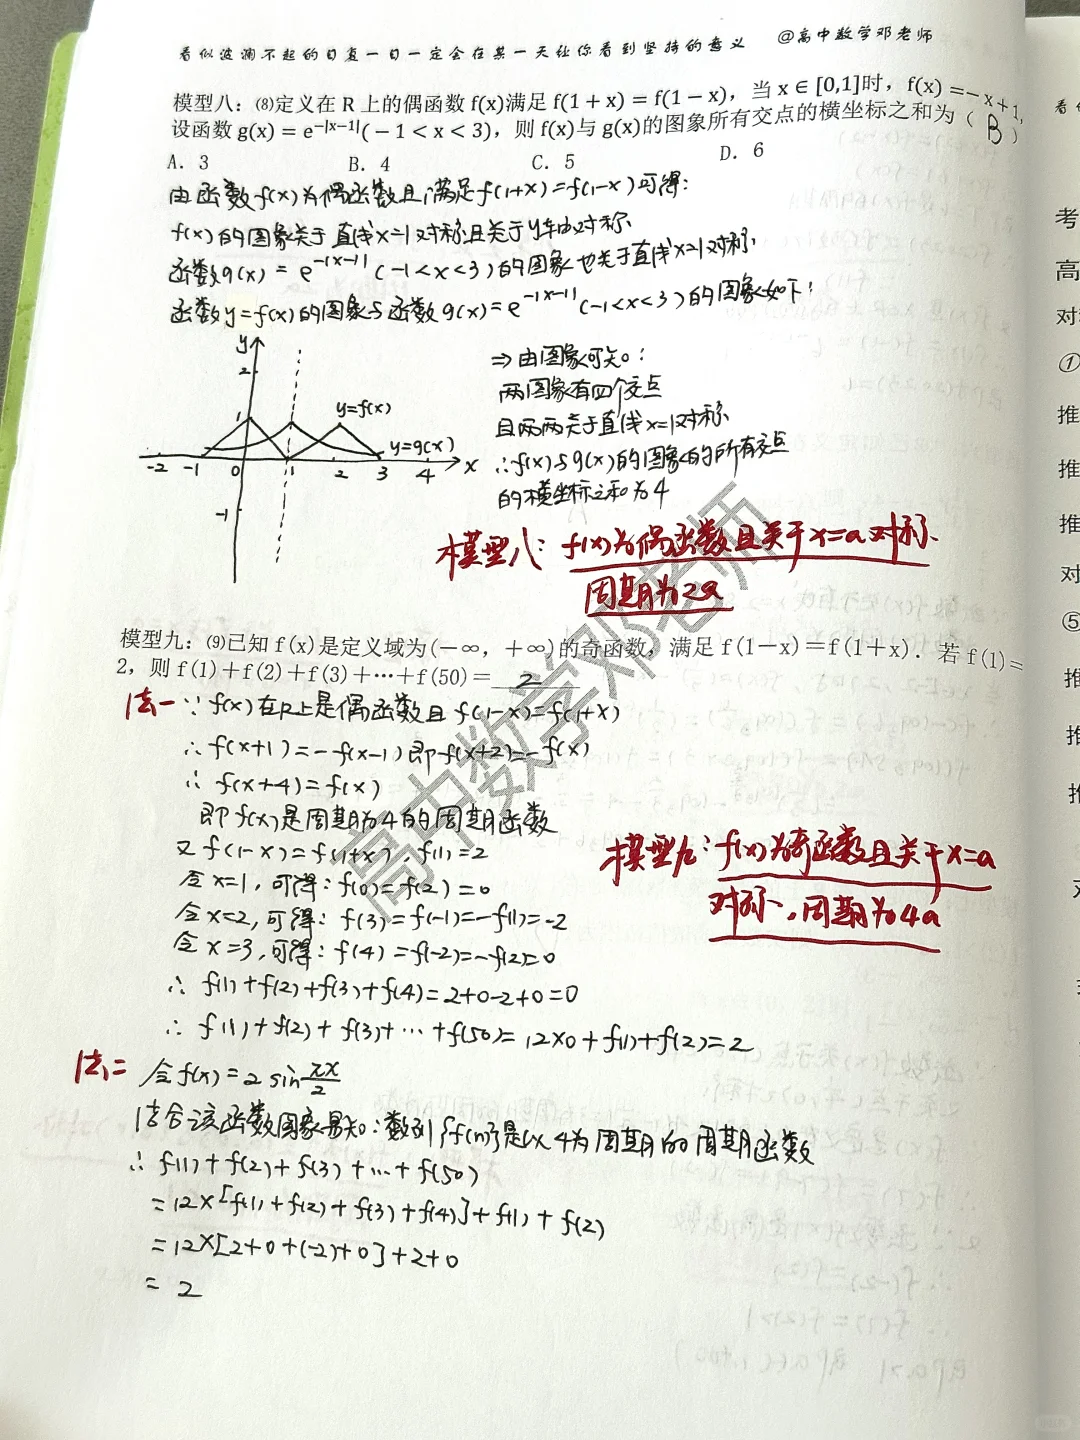 看似波澜不起的日复一日一定会在某一天让你看到坚持的意义 @高中数学邓老师
模型八：⑻定义在 R 上的偶函数 f(x)满足 f(1 + x) = f(1 − x)，当 x ∈ [0,1]时，f(x) = −x + 1,
设函数 g(x) = e^{−|x−1|}(−1 < x < 3)，则 f(x)与 g(x)的图象所有交点的横坐标之和为（ B ）
A．3 B．4 C．5 D．6
由函数f(x)为偶函数且满足f(1+x)=f(1-x)可得:
f(x)的图象关于直线x=1对称且关于y轴对称
函数g(x) = e^{-|x-1|} (-1<x<3)的图象也关于直线x=1对称
函数y=f(x)的图象与函数g(x)=e^{-|x-1|} (-1<x<3)的图象如下:
y
2
1
y=f(x)
y=g(x)
-2 -1 0 1 2 3 4 x
-1
⇒由图象可知:
两图象有四个交点
且两两关于直线x=1对称
∴f(x)与g(x)的图象的所有交点
的横坐标之和为4
模型八: f(x)为偶函数且关于x=a对称
周期为2a
模型九：⑼已知 f(x)是定义域为(−∞，+∞)的奇函数，满足 f(1−x)＝f(1＋x)．若 f(1)＝
2，则 f(1)＋f(2)＋f(3)＋…＋f(50)＝ 2
法一 ∵ f(x)在R上是偶函数且 f(1-x)=f(1+x)
∴ f(x+1)=-f(x-1)即f(x+2)=-f(x)
∴ f(x+4)=f(x)
即f(x)是周期为4的周期函数
又 f(1-x)=f(1+x) f(1)=2
令x=1,可得: f(0)=f(2)=0
令x=2,可得: f(3)=f(-1)=-f(1)=-2
令x=3,可得: f(4)=f(-2)=-f(2)=0
∴ f(1)+f(2)+f(3)+f(4)=2+0-2+0=0
∴ f(1)+f(2)+f(3)+…+f(50)=12×0+f(1)+f(2)=2
模型九: f(x)为奇函数且关于x=a
对称,周期为4a
法二 令f(x)=2 sin πx/2
结合该函数图象易知:数列{f(n)}是以4为周期的周期函数
∴ f(1)+f(2)+f(3)+…+f(50)
=12×[f(1)+f(2)+f(3)+f(4)]+f(1)+f(2)
=12×[2+0+(-2)+0]+2+0
= 2
高中数学邓老师
看似
考
高
对
①
推
推
推
对
⑤
推
推
推